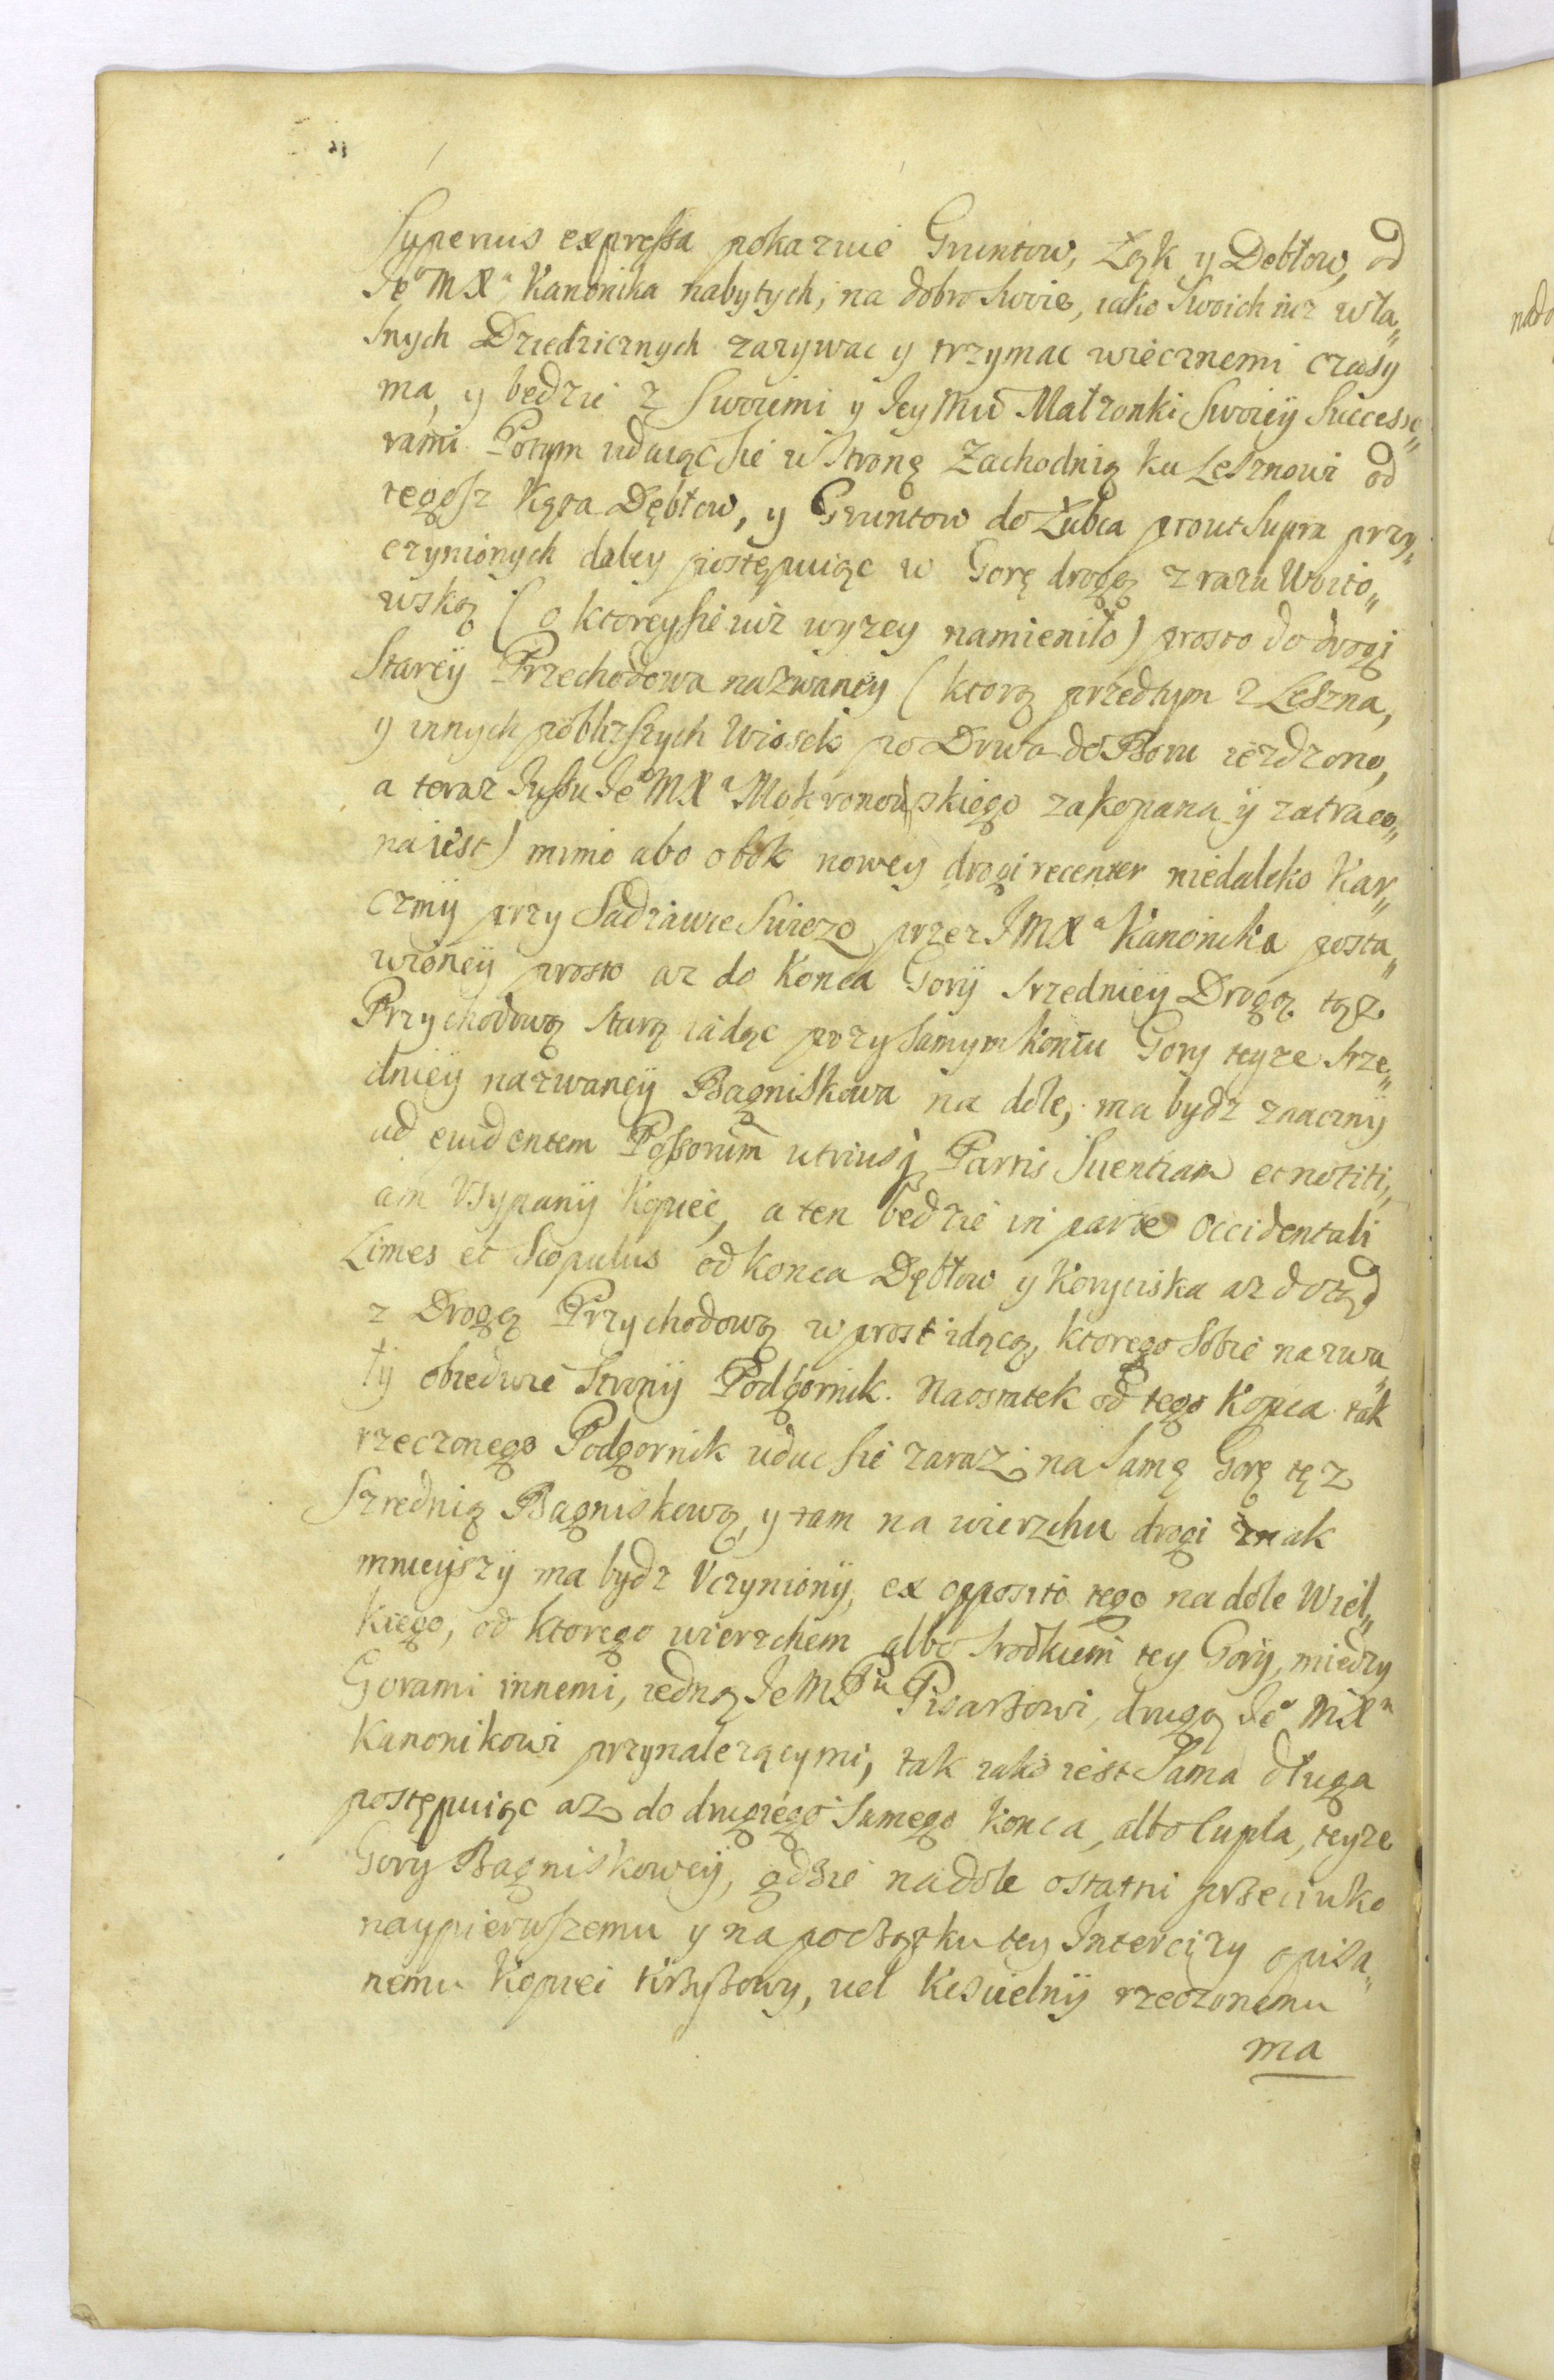 Superius expressa pokazuie Gruntow, Łąk y Debłow, od
Jeo MXa Kanonika nabytych, na dobro swoie, iako swoich iuz wła„
snych Dziedzicznych zazywac y trzymac wiecznemi czasy
ma, y bedzie z swoiemi y Jey Mci Małzonki swoiey Successo„
rami. Potym udaiąc sie w stronę Zachodnią ku Lesznowi od
tegosz Kąta Dębłow, y Gruntow do Łubca prout supra przy„
czynionych daley postępuiąc w Gorę drogą zrazu Woito„
wską (o ktorey sie iuz wyzey namieniło) prosto do drogi
Starey Przechodowa nazwaney (ktorą przedtym z Leszna,
y innych poblizszych Wiosek po Drwa do Boru iezdzono,
a teraz Jussu Jeo MXa Mokronowskiego zakopana y zatraco„
na iest) mimo abo obok nowey drogi recenter niedaleko Kar„
czmy przy Sadzawce swiezo przez JMXa Kanonika posta„
wioney prosto az do Konca Gory srzedniey Drogą tąz
Przychodową starą iadąc przy samym Koncu Gory teyze srze„
dniey nazwaney Bagniskowa na dole, ma bydz znaczny
ad euidentem Possorum utriusq Partis Scientiam et notiti„
am Vsypany Kopiec, a ten bedzie in parte Occidentali
Limes et Scopulus od konca Dębłow y Koryciska az dotąd
z Drogą Przychodową wprost idącą, ktorego sobie nazwa„
ły obiedwie Strony Podgornik. Naostatek od tego Kopca tak
rzeczonego Podgornik udac sie zaraz na samę Gorę tęz
Szrednią Bagniskową, y tam na wierzchu drogi znak
mnieyszy ma bydz Vczyniony, ex opposito tego na dole Wiel„
kiego, od ktorego wierzchem albo srodkiem tey Gory, między
Gorami innemi, iedną Je MPu Pisarzowi, drugą Jeo MXu
Kanonikowi przynalezącymi, tak iako iest Sama długa
postępuiąc az do drugiego samego Konca, albo Cupla, teyze
Gory Bagniskowey, gdzie na dole ostatni przeciwko
naypierwszemu y na początku tey Intercizy opisa„
nemu Kopiei Krzyzowy, uel Kisielny rzeczonemu
ma